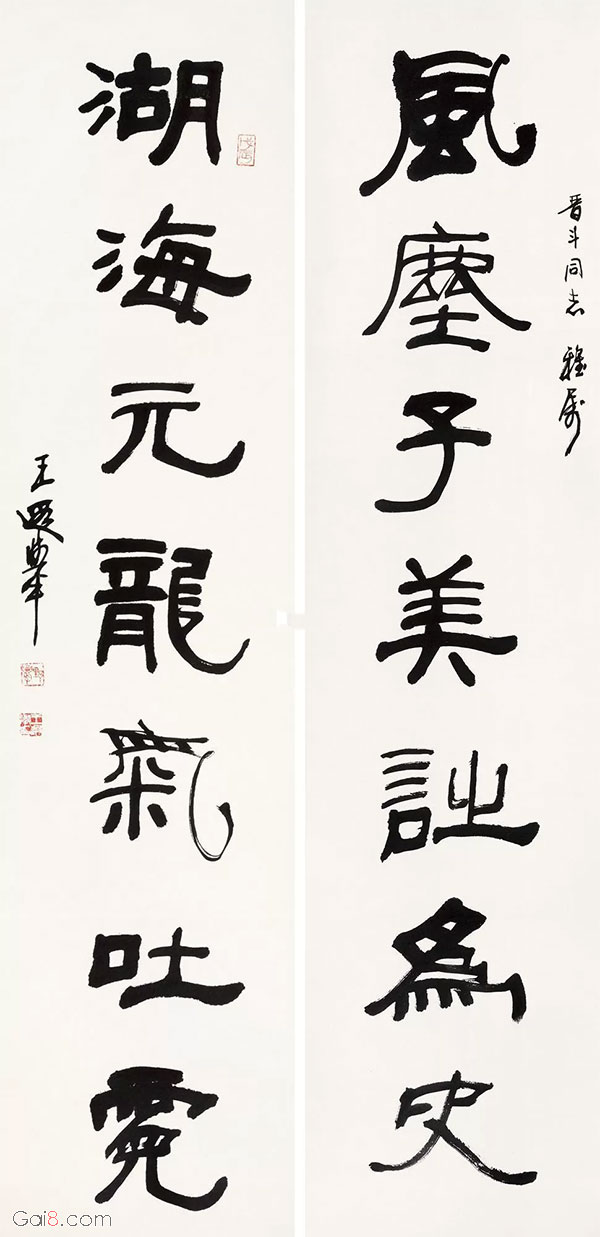 晋斗同志 雅属
風塵子美詩為史
湖海元龍氣吐霓
王遐舉
Gai8.com